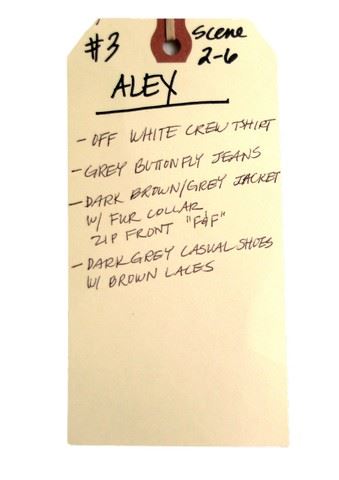 #3
Scene
2-6
ALEX
- OFF WHITE CREW TSHIRT
- GREY BUTTONFLY JEANS
- DARK BROWN/GREY JACKET
W/ FUR COLLAR
ZIP FRONT "F&F"
- DARK GREY CASUAL SHOES
W/ BROWN LACES